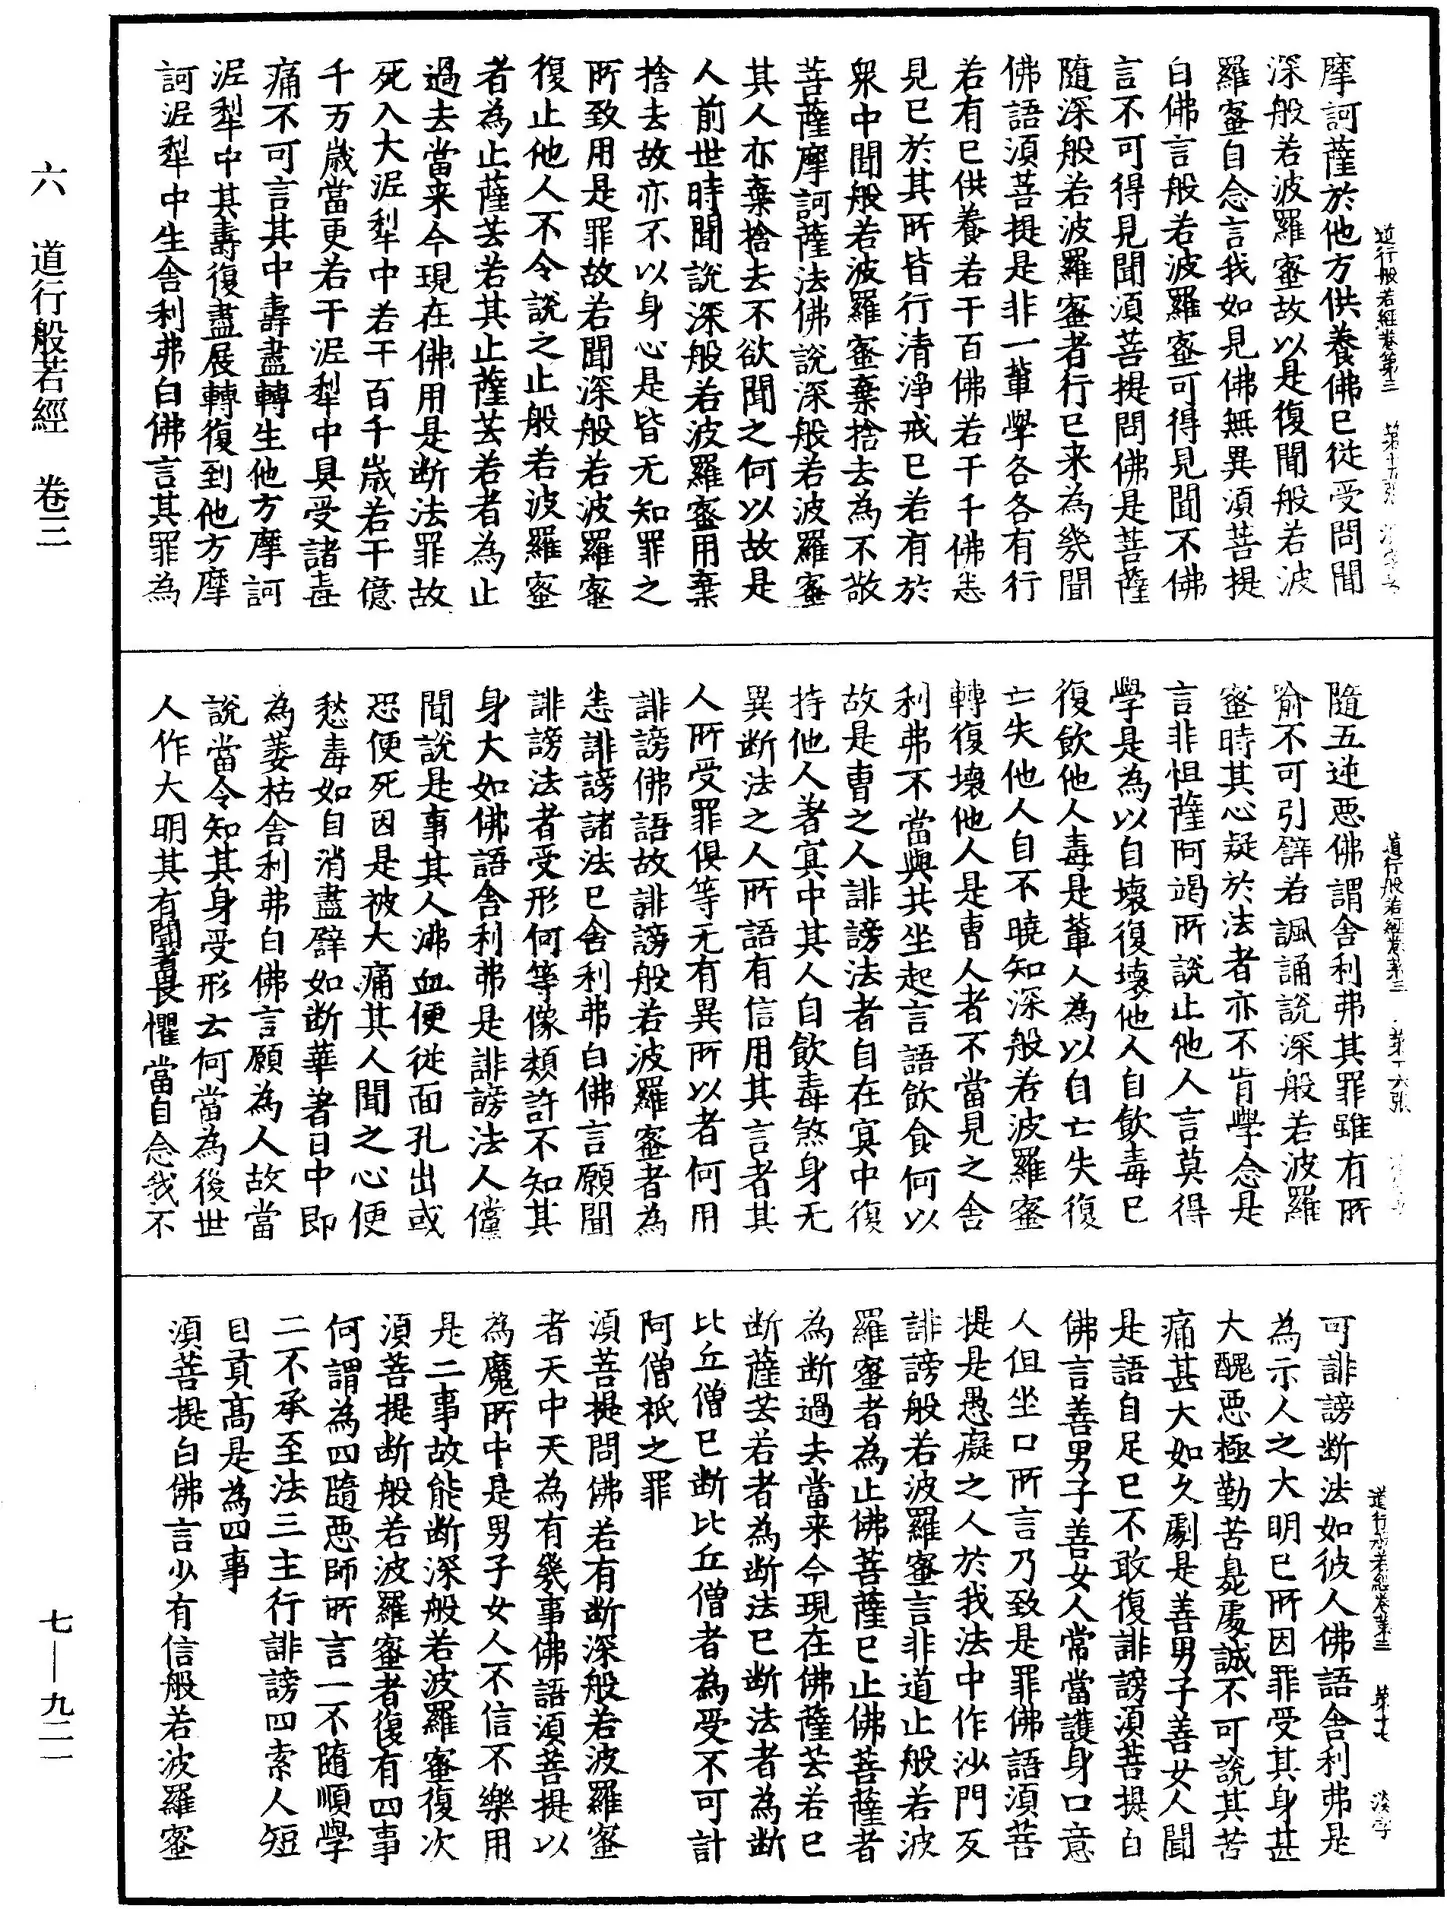 摩訶薩於他方供養佛已從受問聞
深般若波羅蜜故以是復聞般若波
羅蜜自念言我如見佛無異須菩提
白佛言般若波羅蜜可得見聞不佛
言不可得見聞須菩提問佛是菩薩
隨深般若波羅蜜者行已来為幾聞
佛語須菩提是非一輩學各各有行
若有已供養若干百佛若干千佛悉
見已於其所皆行清淨戒已若有於
衆中聞般若波羅蜜棄捨去為不敬
菩薩摩訶薩法佛說深般若波羅蜜
其人亦棄捨去不欲聞之何以故是
人前世時聞說深般若波羅蜜用棄
捨去故亦不以身心是皆无知罪之
所致用是罪故若聞深般若波羅蜜
復止他人不令說之止般若波羅蜜
者為止薩芸若其止薩芸若者為止
過去當来今現在佛用是断法罪故
死入大泥犁中若干百千歲若干億
千万歲當更若干泥犁中具受諸毒
痛不可言其中壽盡轉生他方摩訶
泥犁中其壽復盡展轉復到他方摩
訶泥犁中生舍利弗白佛言其罪為
道行般若經卷第三 第十五張
隨五逆惡佛謂舍利弗其罪雖有所
喻不可引譬若諷誦說深般若波羅
蜜時其心疑於法者亦不肯學念是
言非怛薩阿竭所說止他人言莫得
學是為以自壞復壞他人自飲毒已
復飲他人毒是輩人為以自亡失復
亡失他人自不曉知深般若波羅蜜
轉復壞他人是曹人者不當見之舍
利弗不當與共坐起言語飲食何以
故是曹之人誹謗法者自在冥中復
持他人著冥中其人自飲毒煞身无
異断法之人所語有信用其言者其
人所受罪俱等无有異所以者何用
誹謗佛語故誹謗般若波羅蜜者為
悉誹謗諸法已舍利弗白佛言願聞
誹謗法者受形何等像類訝不知其
身大如佛語舍利弗是誹謗法人儻
聞說是事其人沸血便從面孔出或
恐便死因是被大痛其人聞之心便
愁毒如自消盡譬如断華著日中即
為萎枯舍利弗白佛言願為人故當
說當令知其身受形云何當為後世
人作大明其有聞者畏懼當自念我不
道行般若經卷第三 第十六張
可誹謗断法如彼人佛語舍利弗是
為示人之大明已所因罪受其身甚
大醜惡極勤苦臭處誠不可說其苦
痛甚大如久劇是善男子善女人聞
是語自足已不敢復誹謗須菩提白
佛言善男子善女人常當護身口意
人但坐口所言乃致是罪佛語須菩
提是愚癡之人於我法中作沙門反
誹謗般若波羅蜜言非道止般若波
羅蜜者為止佛菩薩已止佛菩薩者
為断過去當来今現在佛薩芸若已
断薩芸若者為断法已断法者為断
比丘僧已断比丘僧者為受不可計
阿僧祇之罪
須菩提問佛若有断深般若波羅蜜
者天中天為有幾事佛語須菩提以
為魔所中是男子女人不信不樂用
是二事故能断深般若波羅蜜復次
須菩提断般若波羅蜜者復有四事
何謂為四隨惡師所言一不隨順學
二不承至法三主行誹謗四索人短
自貢高是為四事
須菩提白佛言少有信般若波羅蜜
道行般若經卷第三 第十七 淡字
六 道行般若經 卷三
七—九二一